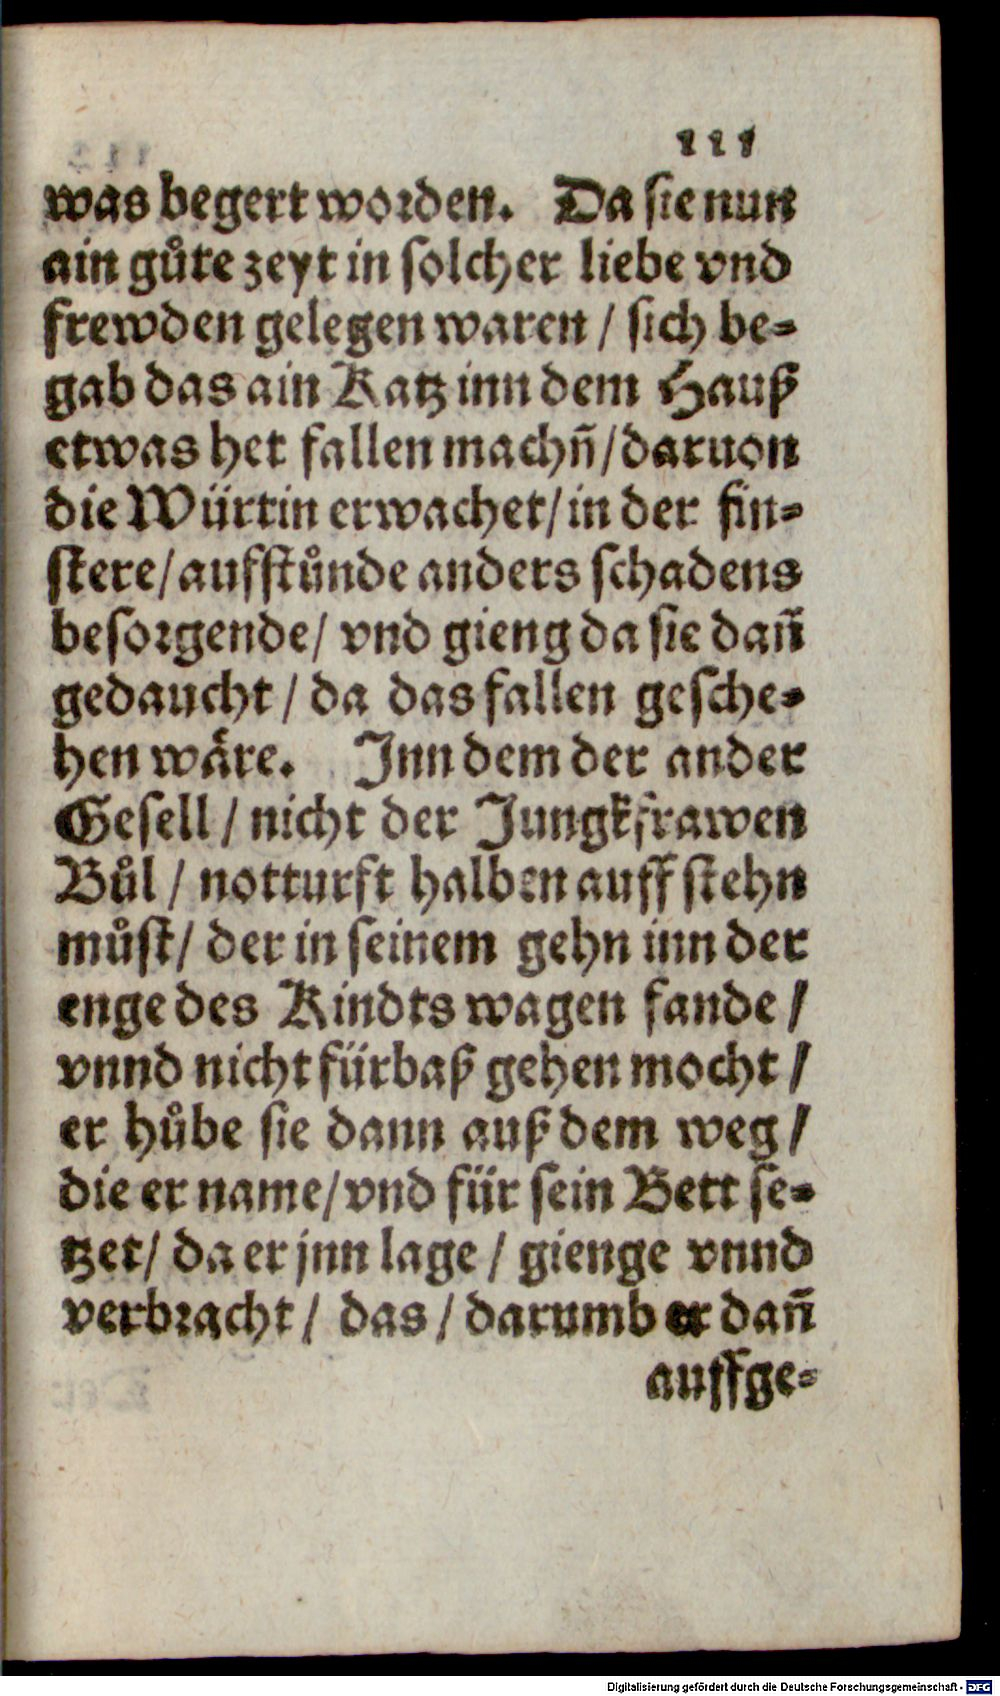 111
was begert worden. Da sie nun
ain gůte zeyt in solcher liebe vnd
frewden gelegen waren / sich be=
gab das ain Katz inn dem Hauß
etwas het fallen machñ / daruon
die Würtin erwachet / in der fin=
stere / aufstůnde anders schadens
besorgende / vnd gieng da sie dañ
gedaucht / da das fallen gesche=
hen wäre. Inn dem der ander
Gesell / nicht der Jungkfrawen
Bůl / notturft halben auff stehn
můst / der in seinem gehn inn der
enge des Kindts wagen fande /
vnnd nicht fürbaß gehen mocht /
er hůbe sie dann auß dem weg /
die er name / vnd für sein Bett se=
tzet / da er jnn lage / gienge vnnd
verbracht / das / darumb er dañ
auffge=
Digitalisierung gefördert durch die Deutsche Forschungsgemeinschaft - DFG